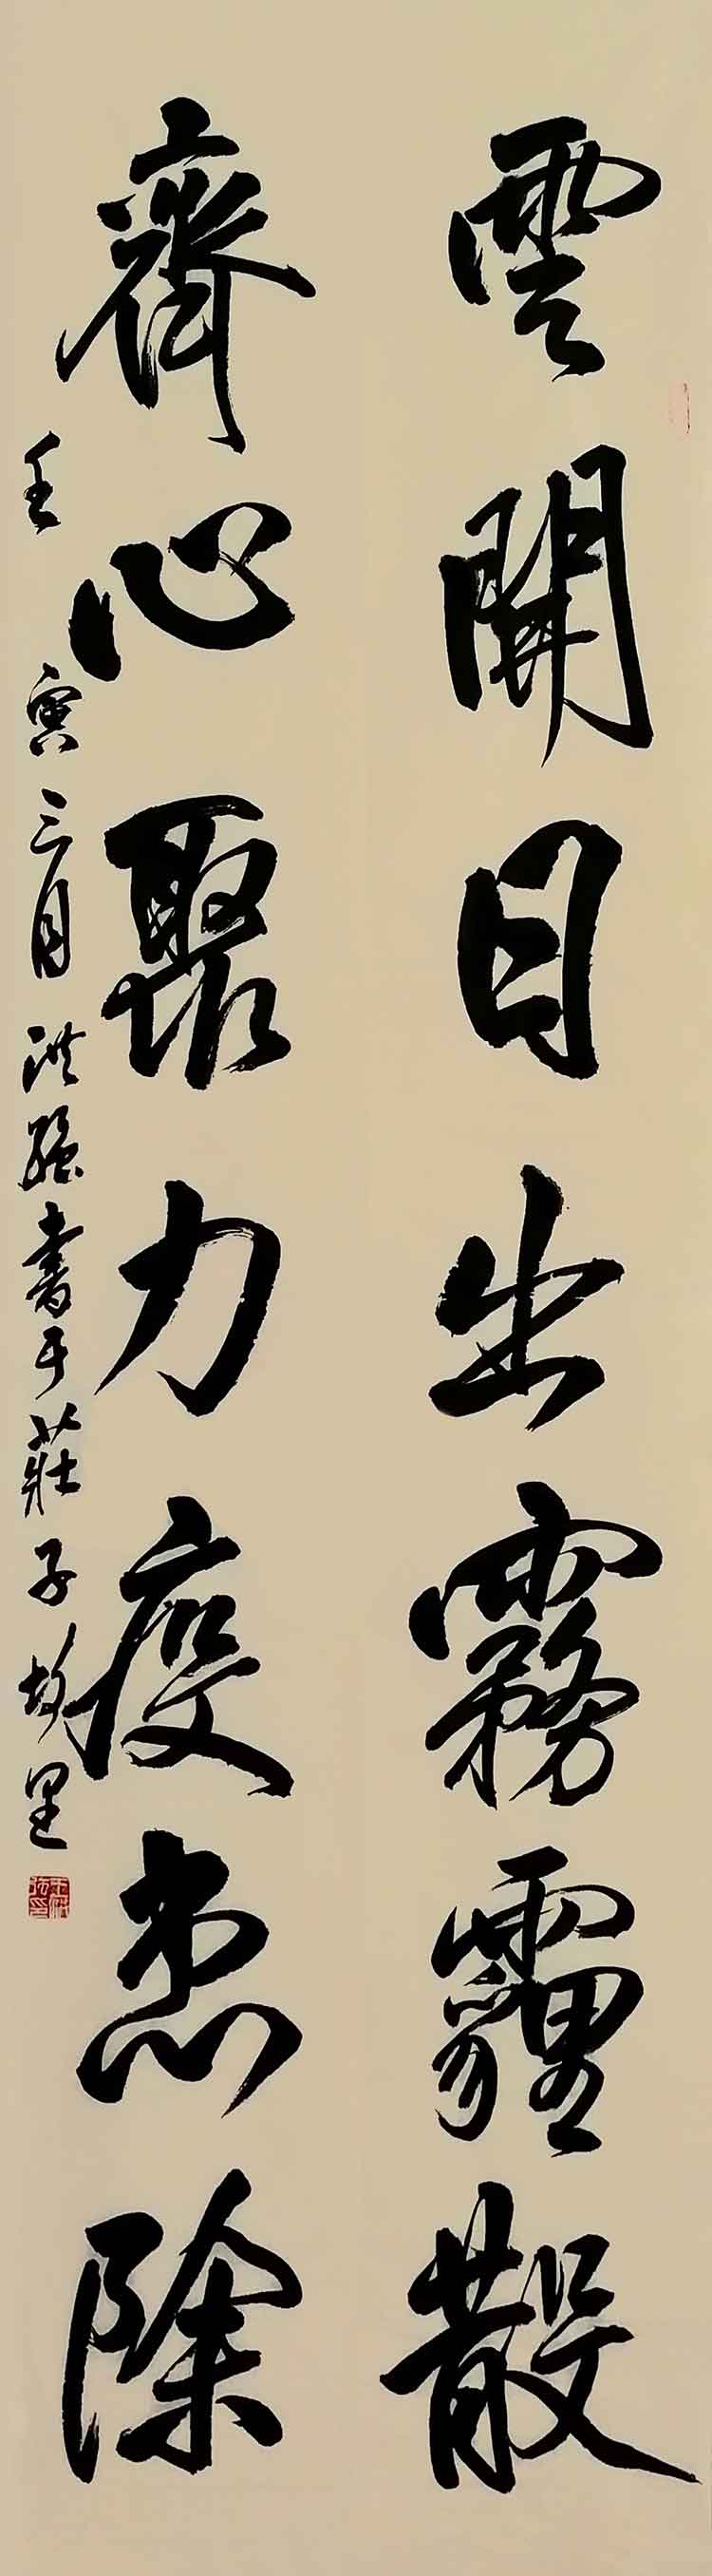 雲開日出霧霾散
齊心聚力疫患除
壬寅三月洪强書于莊子故里